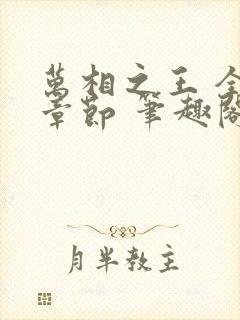 萬相之王 全
章節 筆趣閣
月半教主